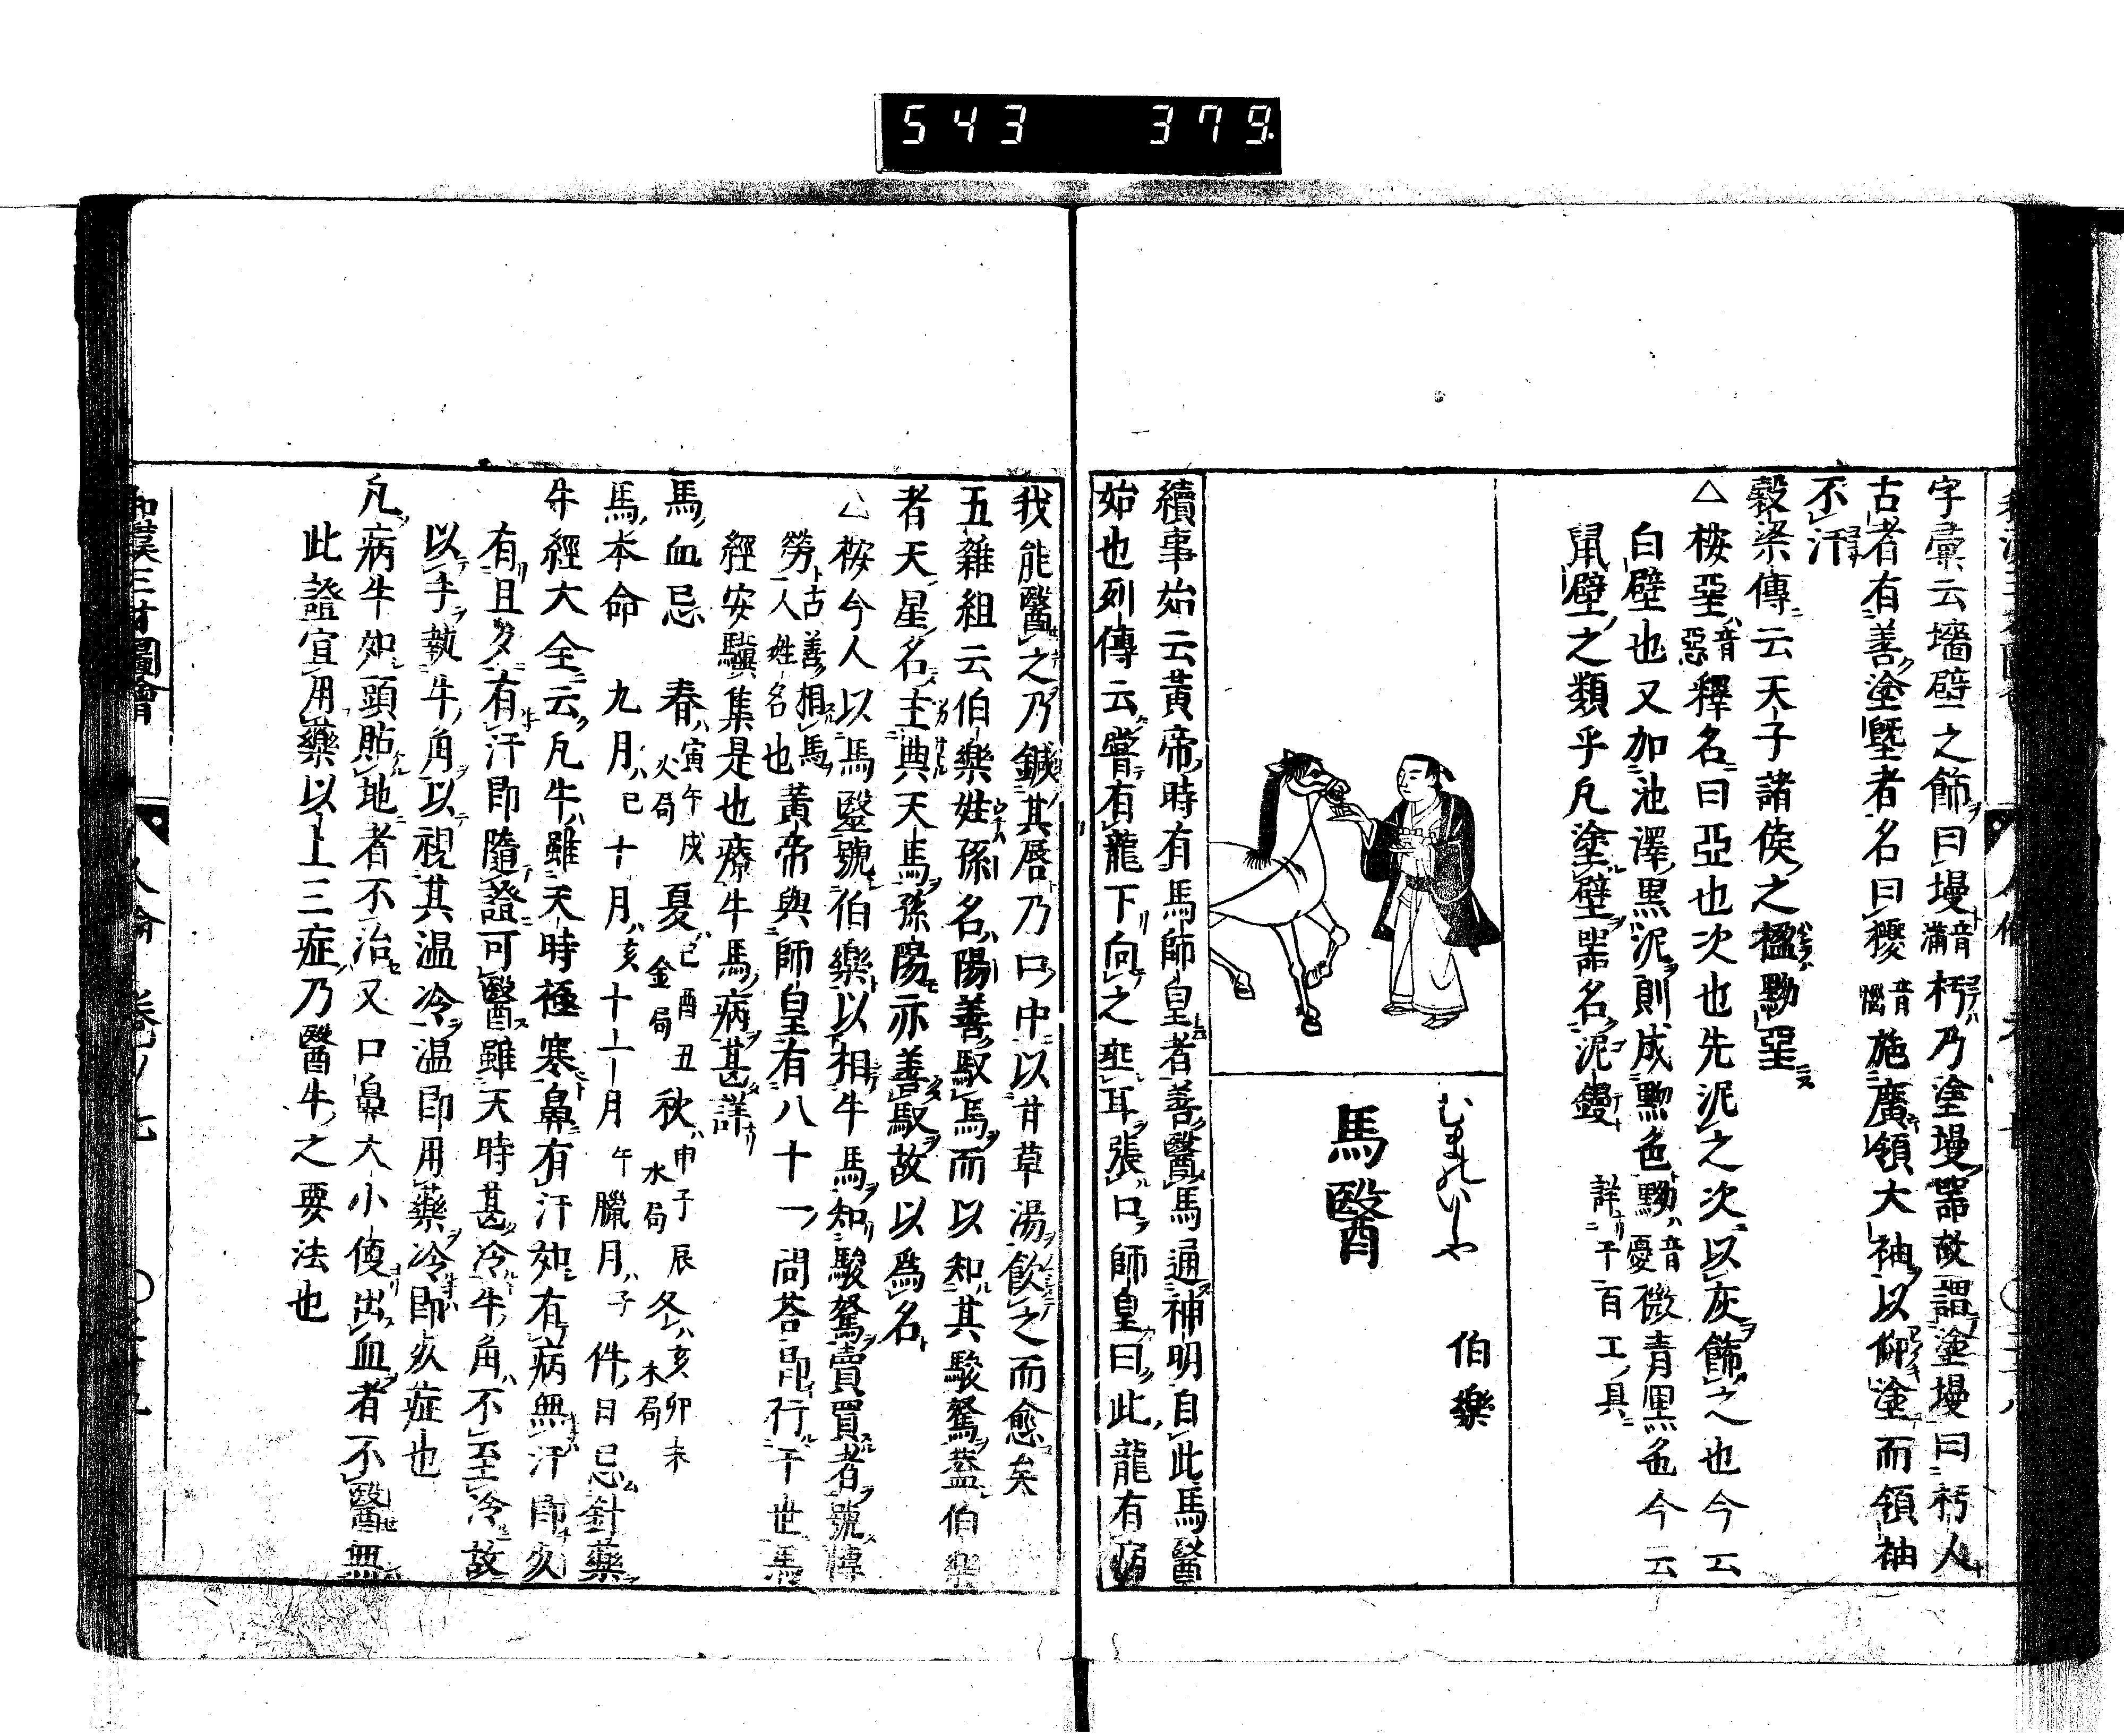 543 379
字彙云墻壁之飾曰墁音滿杇乃塗墁器故謂塗墁曰杇人
古者有善塗塈者名曰獿音憹施廣領大袖以仰塗而領袖
不汙
穀梁傳云天子諸侯之楹黝堊
△按堊音惡釋名曰亞也次也先泥之次以灰飾之也今云
白壁也又加池澤黒泥則成黝色黝音憂微青黒色今云
鼠壁之類乎凡塗壁器名泥鏝詳于百工具
馬醫
むまのいしや
伯樂
續事始云黃帝時有馬師皇者善醫馬通神明自此馬醫
始也列傳云嘗有龍下向之垂耳張口師皇曰此龍有病
我能醫之乃鍼其唇乃口中以甘草湯飲之而愈矣
五雜組云伯樂姓孫名陽善馭馬而以知其駿駑蓋伯樂
者天星名主典天馬孫陽亦善馭故以爲名
△按今人以馬醫號伯樂以相牛馬知駿駑賣買者號博
勞古善相馬人姓名也黃帝與師皇有八十一問荅即行于世馬
經安驥集是也療牛馬病甚詳
馬血忌 春寅午戌火局 夏巳酉丑金局 秋申子辰水局 冬亥卯未木局
馬本命 九月巳十月亥十一月午臘月子件日忌針藥
牛經大全云凡牛雖天時極寒鼻有汗如有病無汗即久
有且夕有汗即隨證可醫雖天時甚冷牛角不至冷故
以手執牛角以視其温冷温即用藥冷即久症也
凡病牛如頭貼地者不治又口鼻大小便出血者不醫無
此證宜用藥以上三症乃醫牛之要法也
和漢三才圖會 人倫 卷ノ七